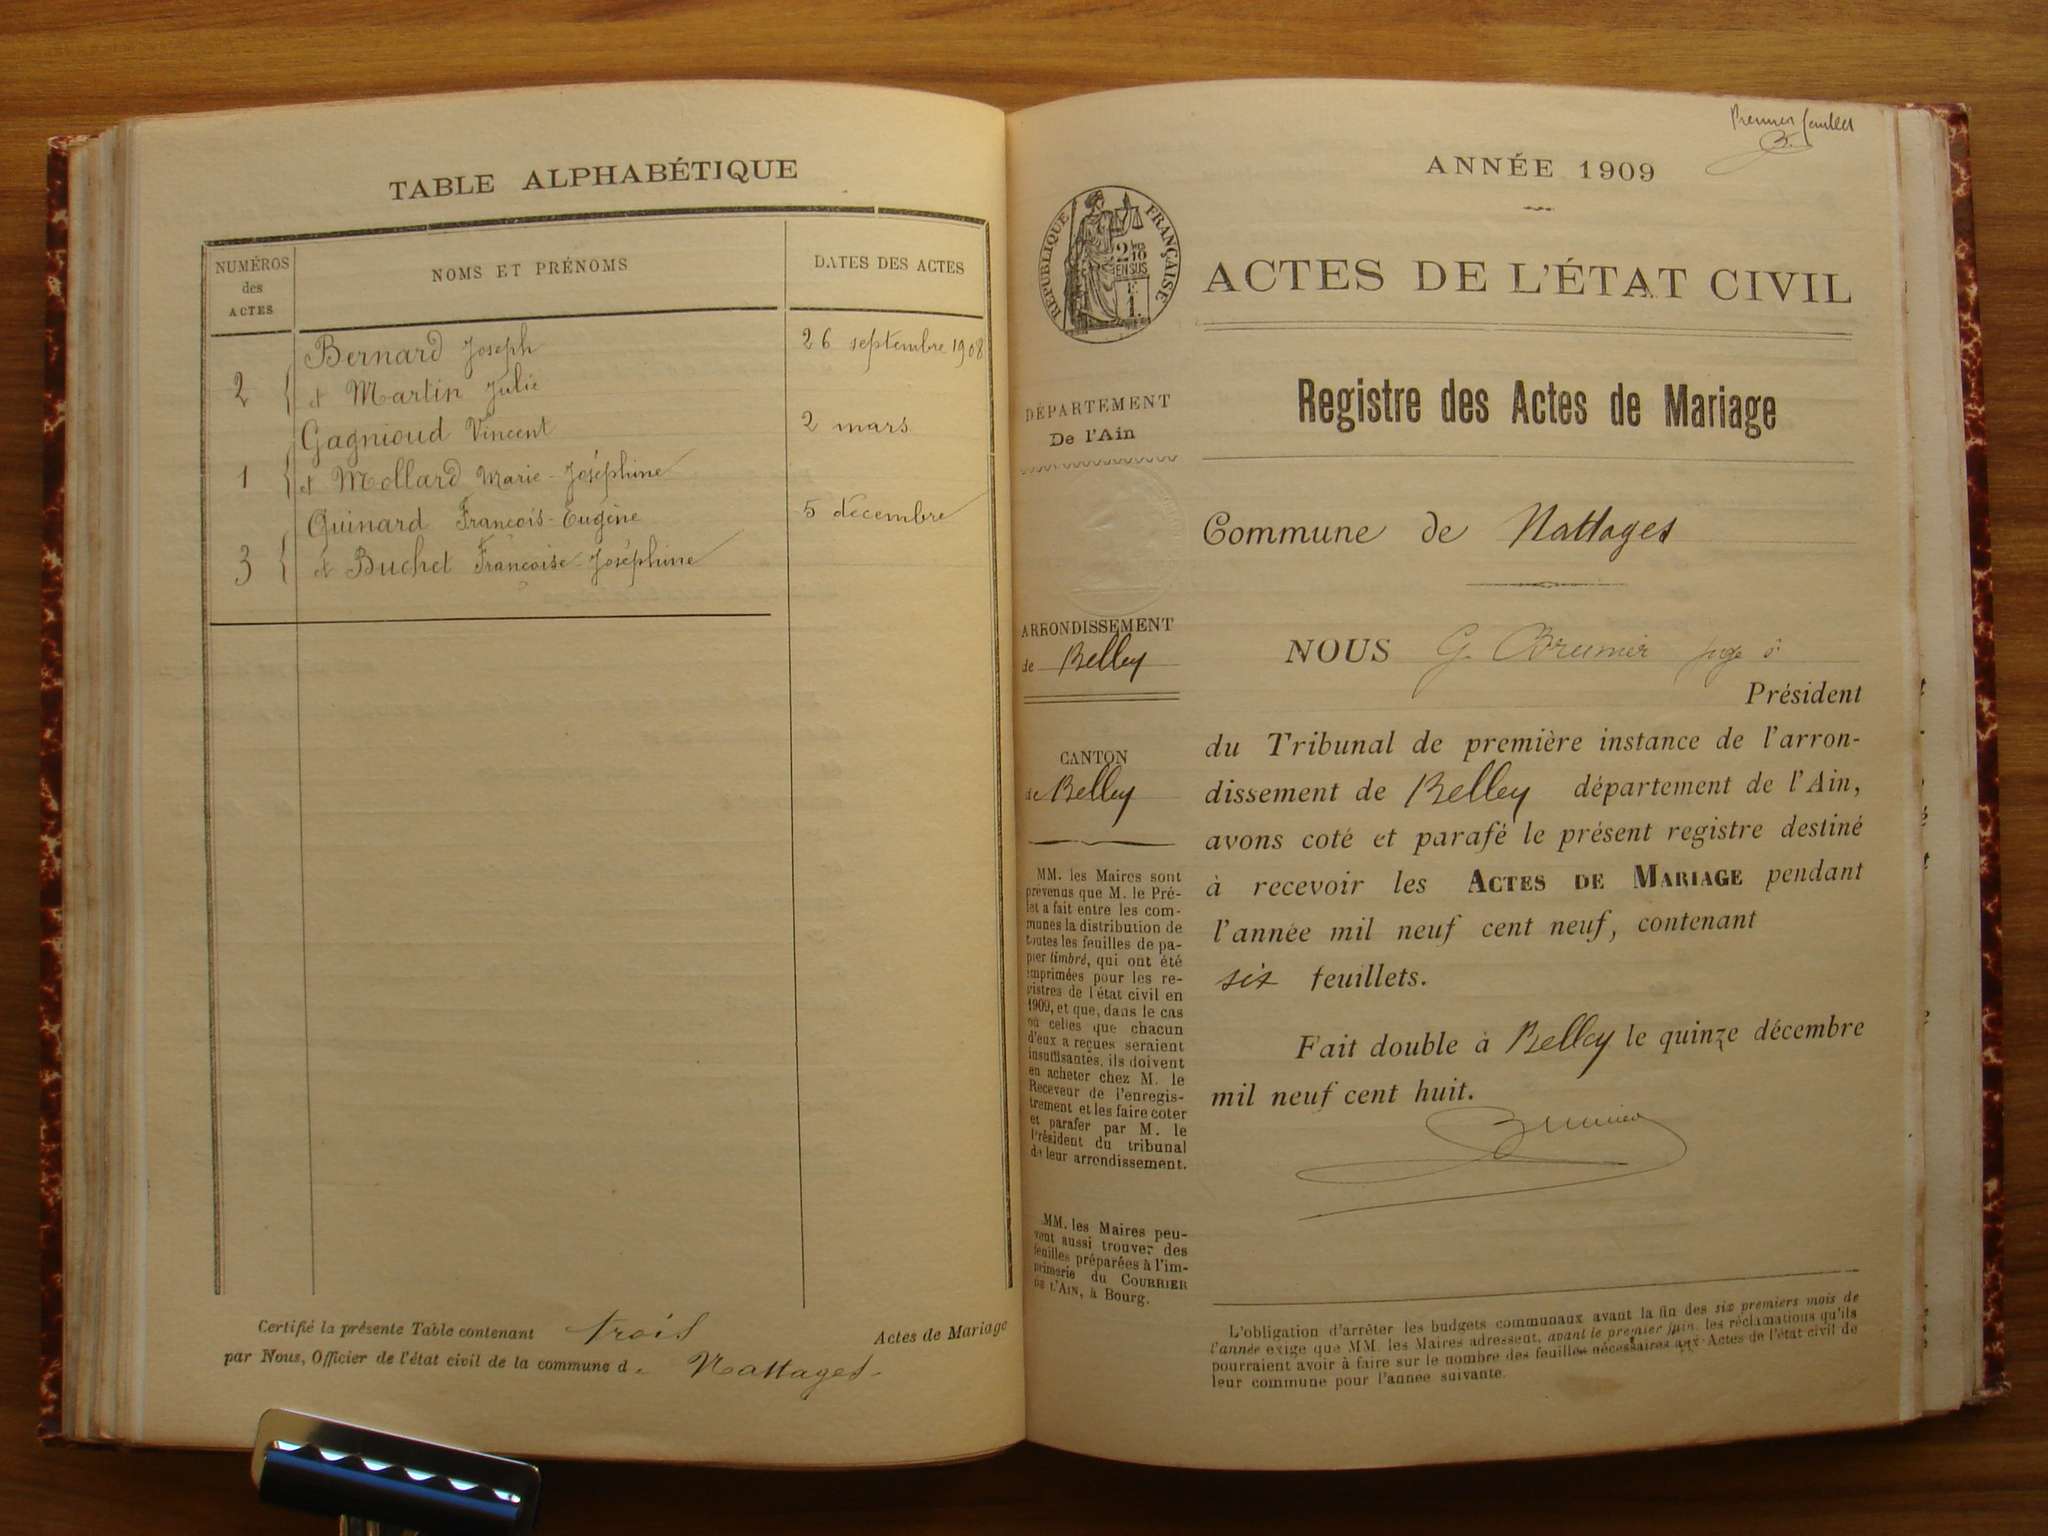 TABLE ALPHABÉTIQUE
NUMÉROS
des
ACTES
NOMS ET PRÉNOMS
DATES DES ACTES
Bernard Joseph
26 septembre 1908
2 { et Martin Julie
Gagnioud Vincent
2 mars
1 { et Mollard Marie-Joséphine
Guinard François-Eugène
5 décembre
3 { et Buchet Françoise-Joséphine
Certifié la présente Table contenant trois Actes de Mariage
par Nous, Officier de l'état civil de la commune de Nattages.
Premier feuillet
ANNÉE 1909
RÉPUBLIQUE FRANÇAISE
2/10 EN SUS
1.
ACTES DE L'ÉTAT CIVIL
Registre des Actes de Mariage
DÉPARTEMENT
De l'Ain
Commune de Nattages
ARRONDISSEMENT
de Belley
CANTON
de Belley
MM. les Maires sont
prévenus que M. le Pré-
fet a fait entre les com-
munes la distribution de
toutes les feuilles de pa-
pier timbré, qui ont été
imprimées pour les re-
gistres de l'état civil en
1909, et que, dans le cas
où celles que chacun
d'eux a reçues seraient
insuffisantes, ils doivent
en acheter chez M. le
Receveur de l'enregis-
trement et les faire coter
et parafer par M. le
Président du tribunal
de leur arrondissement.
MM. les Maires peu-
vent aussi trouver des
feuilles préparées à l'im-
primerie du COURRIER
DE L'AIN, à Bourg.
NOUS G. Brunier juge
Président
du Tribunal de première instance de l'arron-
dissement de Belley département de l'Ain,
avons coté et parafé le présent registre destiné
à recevoir les ACTES DE MARIAGE pendant
l'année mil neuf cent neuf, contenant
six feuillets.
Fait double à Belley le quinze décembre
mil neuf cent huit.
Brunier
L'obligation d'arrêter les budgets communaux avant la fin des six premiers mois de
l'année exige que MM. les Maires adressent, avant le premier juin, les réclamations qu'ils
pourraient avoir à faire sur le nombre des feuilles nécessaires aux Actes de l'état civil de
leur commune pour l'année suivante.